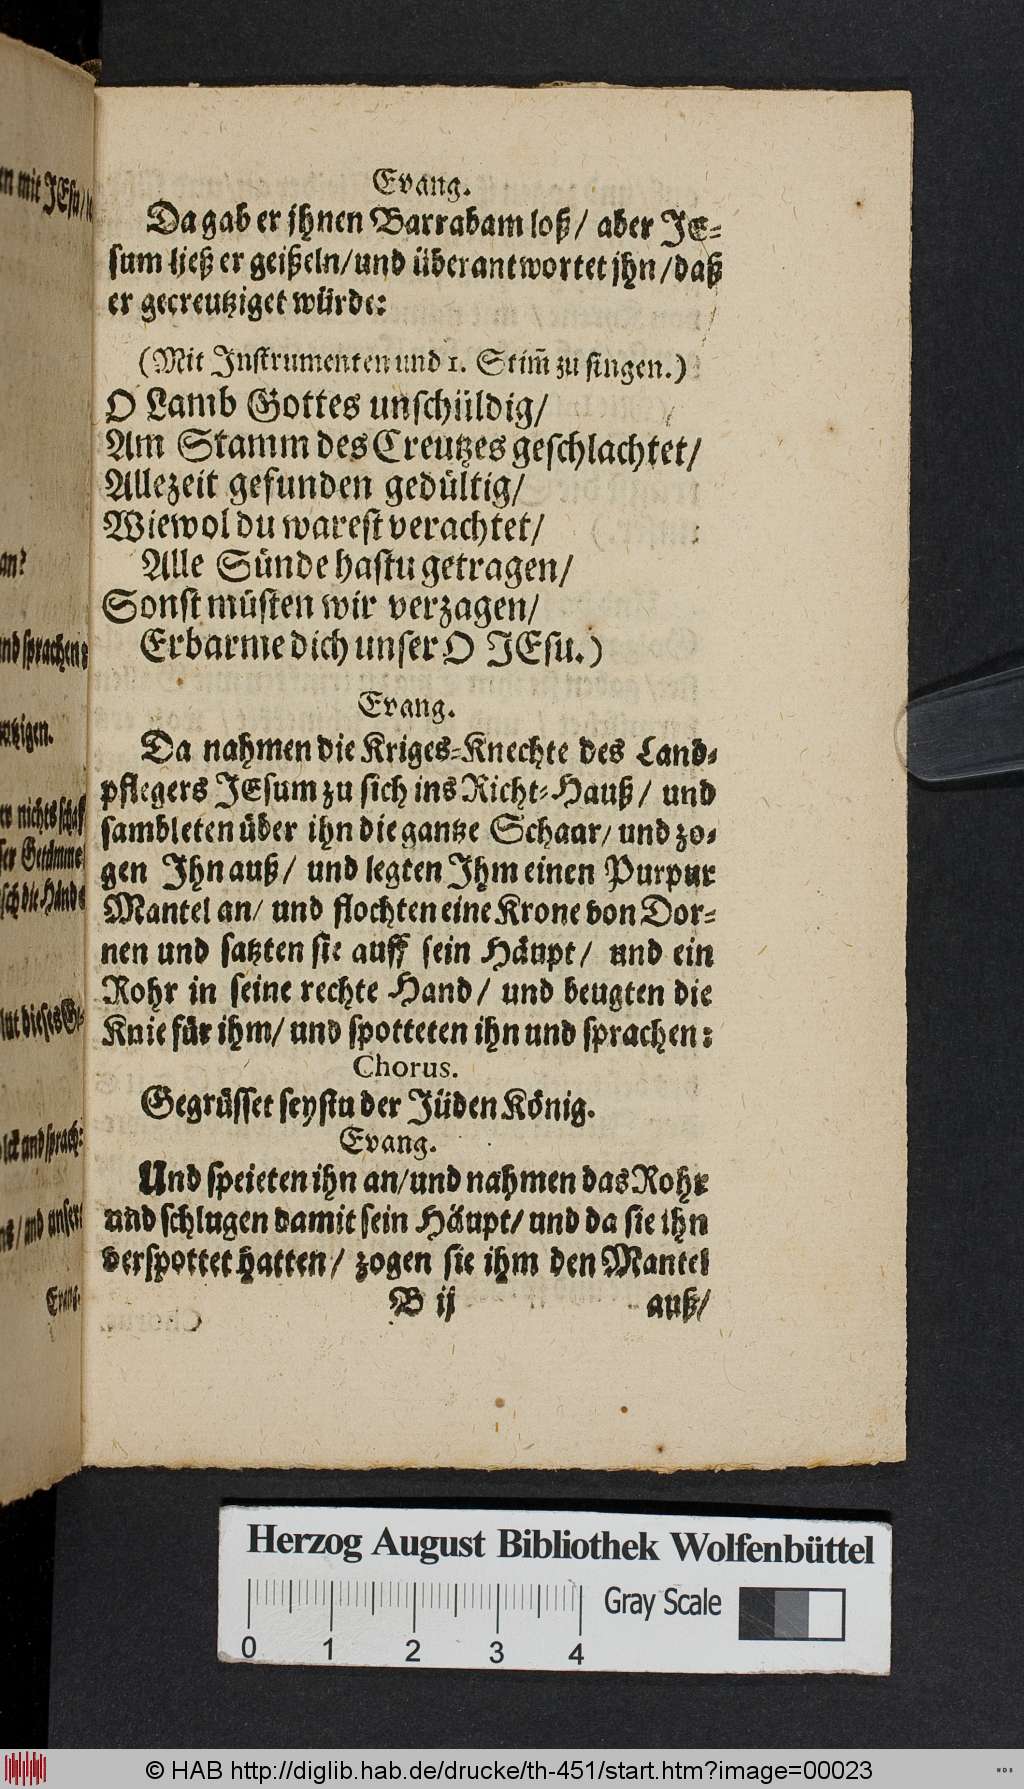 en mit JEsu/
an?
nd sprachen:
utzigen.
er nichts schaf
ser Getümme
sch die Hände
lut dieses Ge-
olck und sprach:
ns/ und unser
Evang.
Evang.
Da gab er jhnen Barrabam loß/ aber JE-
sum ließ er geißeln/ und überantwortet jhn/ daß
er gecreutziget würde:
(Mit Instrumenten und 1. Stim̃ zu singen.)
O Lamb Gottes unschüldig/
Am Stamm des Creutzes geschlachtet/
Allezeit gefunden gedültig/
Wiewol du warest verachtet/
Alle Sünde hastu getragen/
Sonst müsten wir verzagen/
Erbarme dich unser O JEsu.)
Evang.
Da nahmen die Kriges-Knechte des Land-
pflegers JEsum zu sich ins Richt-Hauß/ und
sambleten über ihn die gantze Schaar/ und zo-
gen Ihn auß/ und legten Ihm einen Purpur
Mantel an/ und flochten eine Krone von Dor-
nen und satzten sie auff sein Häupt/ und ein
Rohr in seine rechte Hand/ und beugten die
Knie für ihm/ und spotteten ihn und sprachen:
Chorus.
Gegrüsset seystu der Jüden König.
Evang.
Und speieten ihn an/ und nahmen das Rohr
und schlugen damit sein Häupt/ und da sie ihn
verspottet hatten/ zogen sie ihm den Mantel
B ij auß/
Herzog August Bibliothek Wolfenbüttel
Gray Scale
0 1 2 3 4
© HAB http://diglib.hab.de/drucke/th-451/start.htm?image=00023